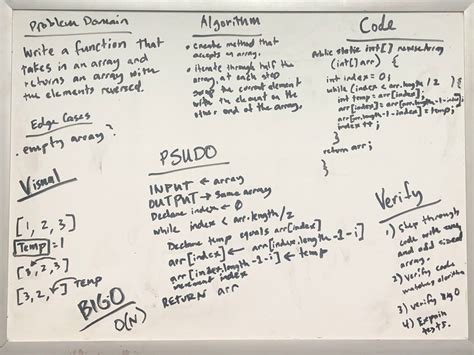 Problem Domain
Write a function that
takes in an array and
returns an array with
the elements reversed.
Edge Cases
• empty array?
Visual
[1, 2, 3]
Temp = 1
[3, 2, 3]
[3, 2, ] Temp
BIGO
O(N)
Algorithm
• create method that
accepts an array.
• iterate through half the
array, at each step
swap the current element
with the element on the
other end of the array.
PSUDO
INPUT ← array
OUTPUT → same array
Declare index ← 0
while index < arr.length/2
Declare temp equals arr[index]
arr[index] ← arr[index.length-1-i]
arr[index.length-1-i] ← temp
index
RETURN arr
Code
public static int[] reverseArray
(int[] arr) {
int index = 0;
while (index < arr.length / 2) {
int temp = arr[index];
arr[index] = arr[arr.length-1-index];
arr[arr.length-1-index] = temp;
index++;
}
return arr;
}
Verify
1) Step through
code with even
and odd sized
arrays.
2) verify code
matches algorithm
3) verify Big O
4) Explain
tests.